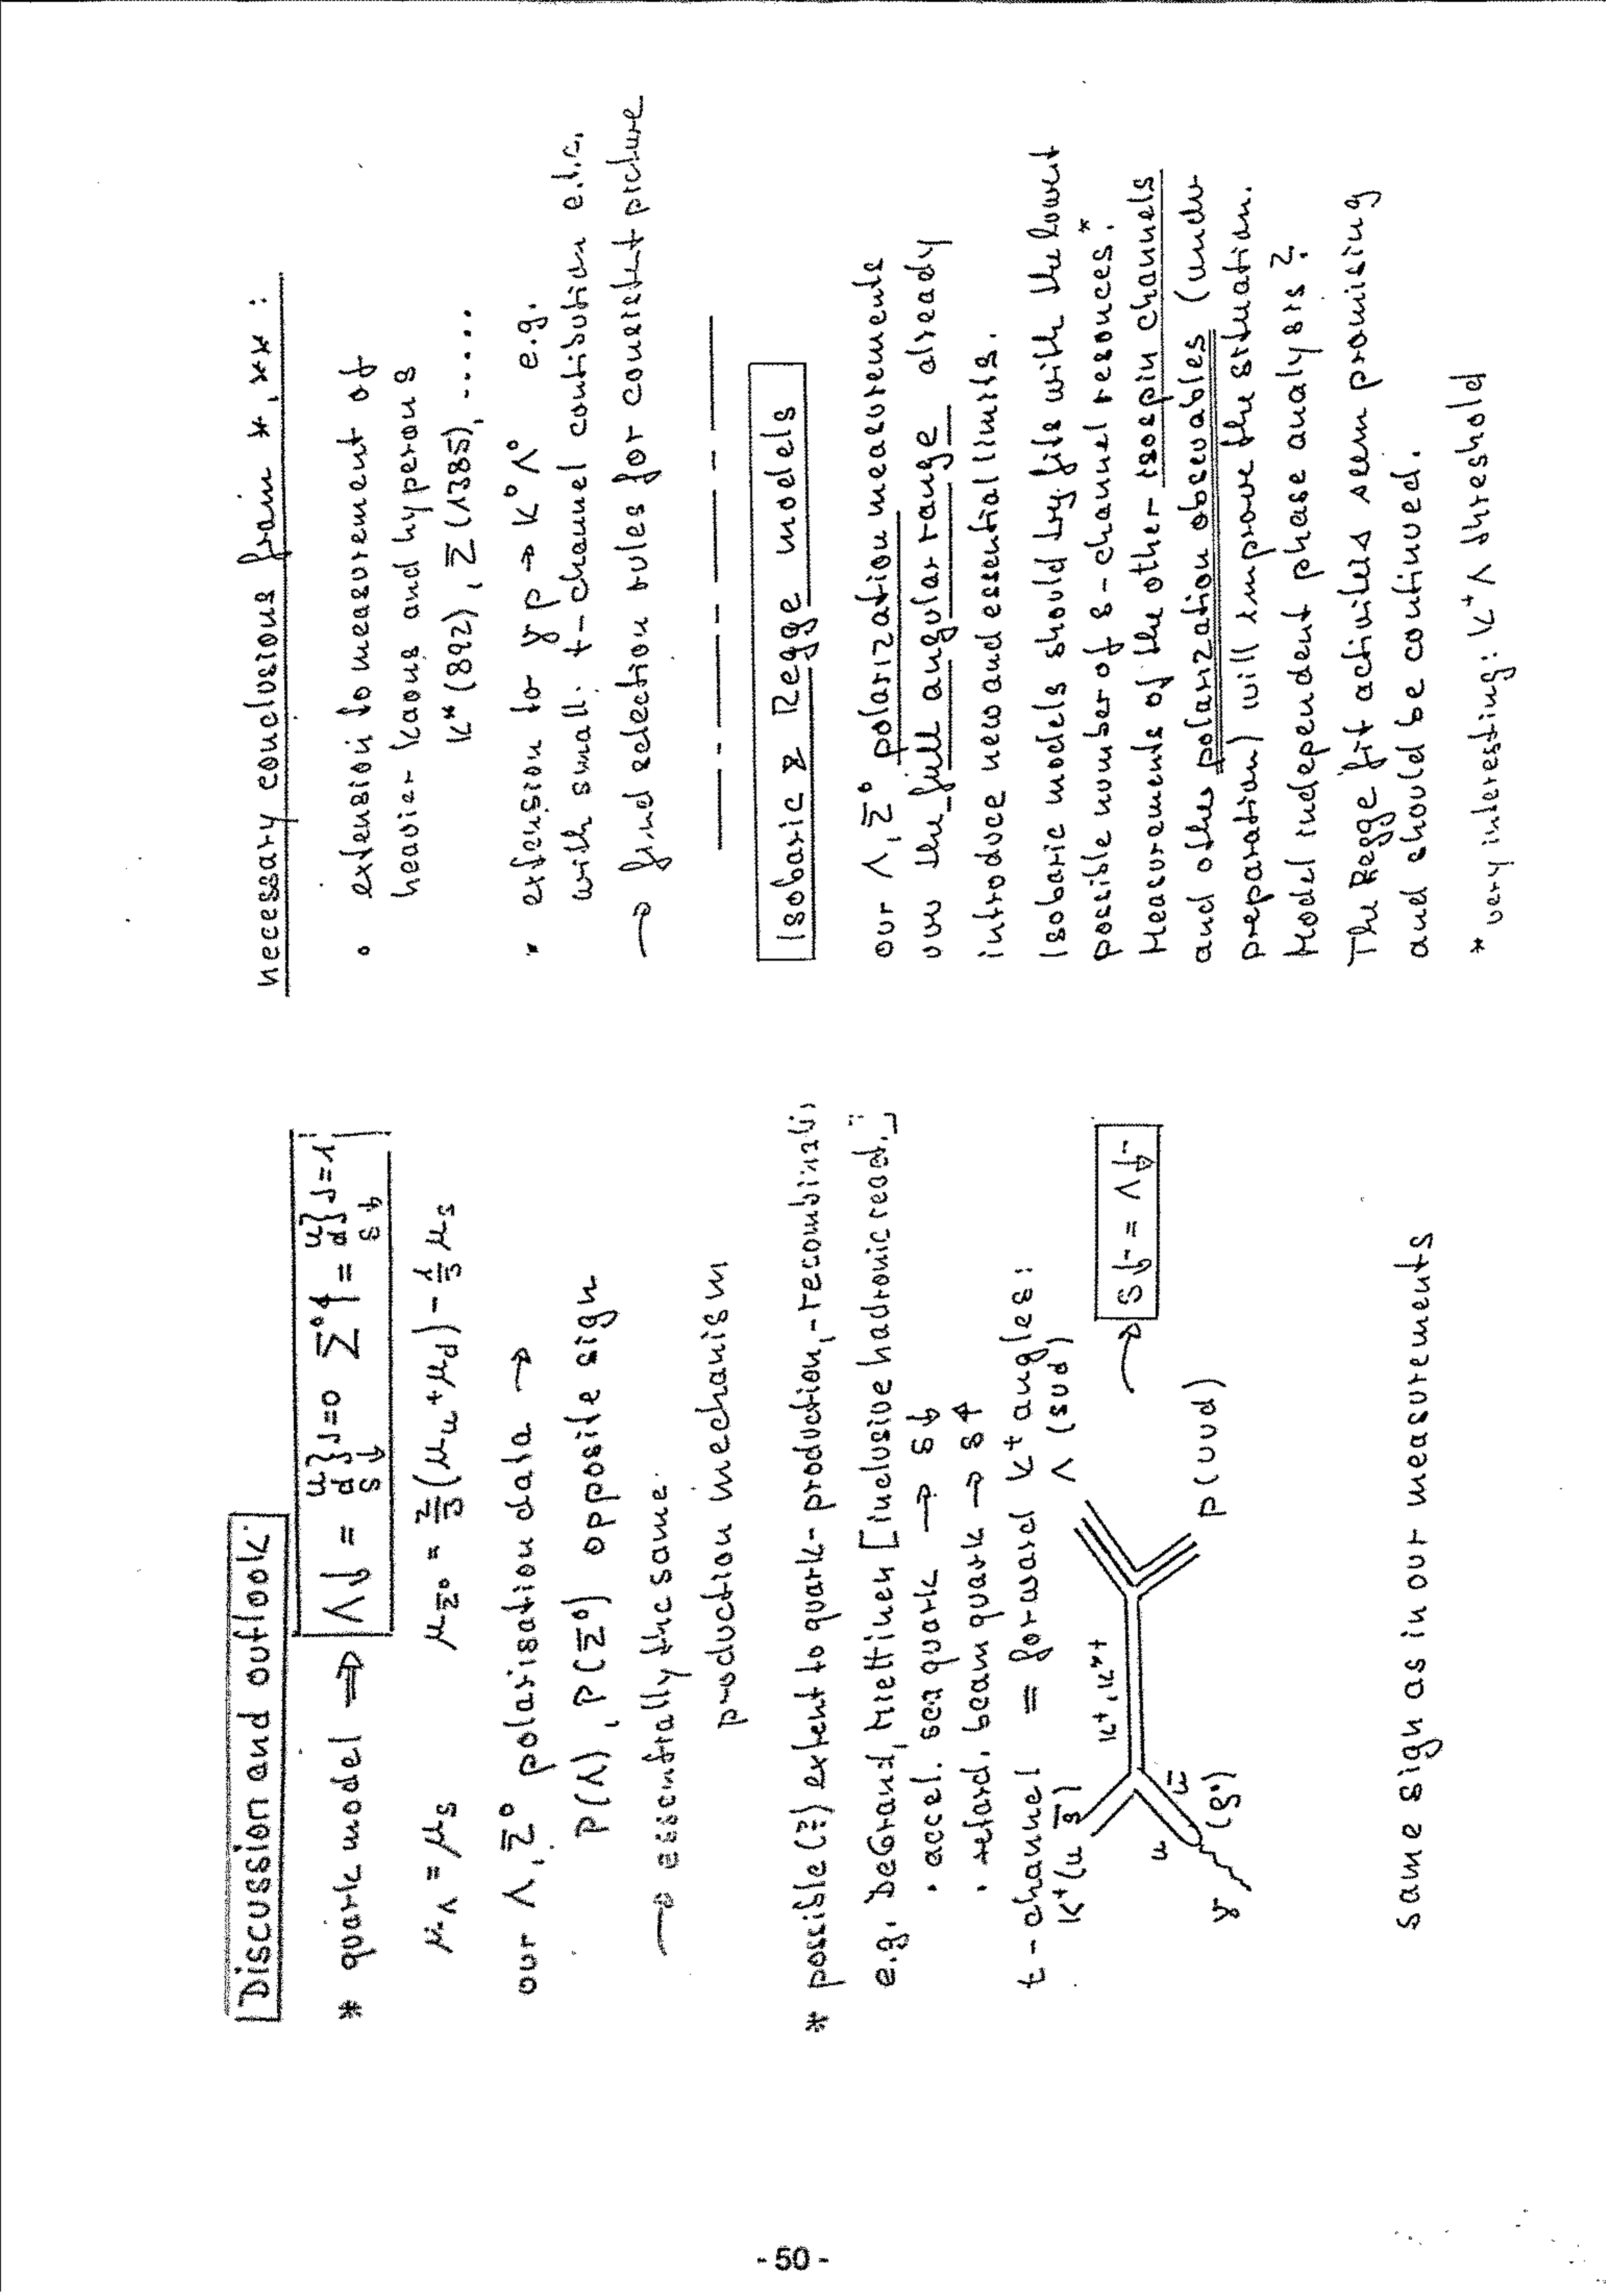 Discussion and outlook
* quark model ⇒ Λ↓ = u d } J=0 s ↓ Σ⁰↑ = u d } J=1 s ↓
μ_Λ = μ_s μ_Σ⁰ = 2/3 (μ_u + μ_d) - 1/3 μ_s
our Λ, Σ⁰ polarisation data →
P(Λ), P(Σ⁰) opposite sign
→ essentially the same
production mechanism
* possible (?) extent to quark-production, -recombinati
e.g. DeGrand, Miettinen [inclusive hadronic react.]
• accel. sea quark → s↓
• retard. beam quark → s↑
t-channel = forward K⁺ angles:
K⁺(u s̄) Λ (sud)
K⁺, K*⁺ → s↓ = Λ↓
u ū
γ (ρ⁰) p(uud)
same sign as in our measurements
necessary conclusions from *, ** :
• extension to measurement of
heavier kaons and hyperons
K*(892), Σ(1385), .....
• extension to γp → K⁰Λ⁰ e.g.
with small t-channel contibution e.t.c.
→ find selection rules for consistent picture
Isobaric & Regge models
our Λ, Σ⁰ polarization measurements
over the full angular range already
introduce new and essential limits.
Isobaric models should try fits with the lowest
possible number of s-channel resonces.*
Measurements of the other isospin channels
and other polarization observables (under
preparation) will improve the situation.
Model independent phase analysis?
The Regge fit activites seem promising
and should be continued.
* very interesting: K⁺Λ threshold
- 50 -